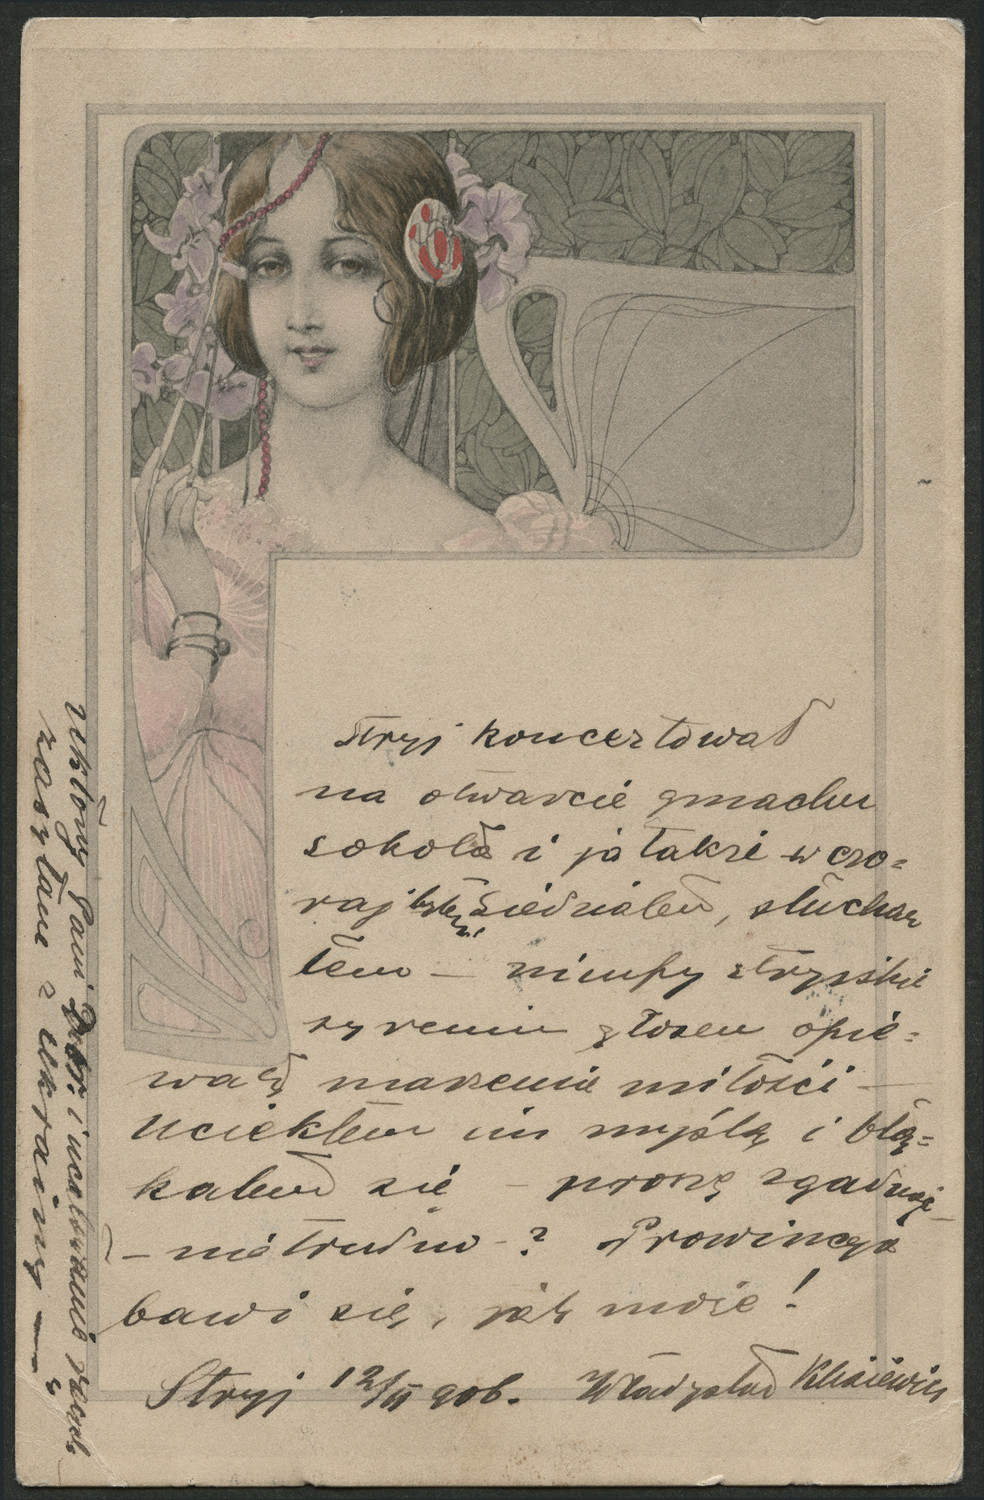 Stryj koncertował
na otwarcie gmachu
sokoła i ja także wczo=
raj siedziałem, słucha
łem — nimfy stryjskie
syrenim głosem opie=
wały marzenie miłości —
Uciekłem im myślą i błą=
kałem się — proszę zgadnąć
— nie trudno — ? Prowincya
bawi się, jak może!
Stryj 12/II 906. Władysław
Ukłony Pani Dobr. i ucałowanie rączek
zasyłam z ukrainy —